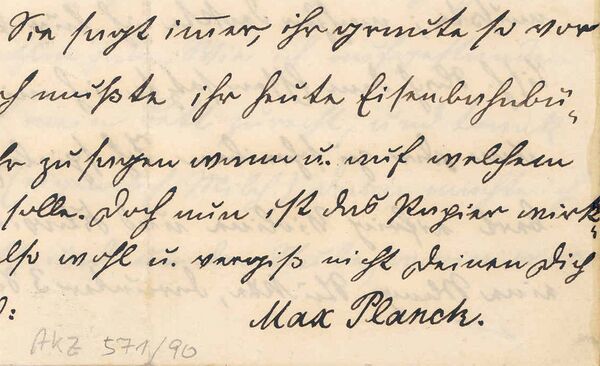 Sie sagt immer, ihr graute so vor
ch mußte ihr heute Eisenbahnbü-
hr zu sagen wann u. auf welchem
solle. Doch nun ist das Papier wirk-
lso wohl u. vergiß nicht Deinen Dich
Max Planck.
AkZ 571/90